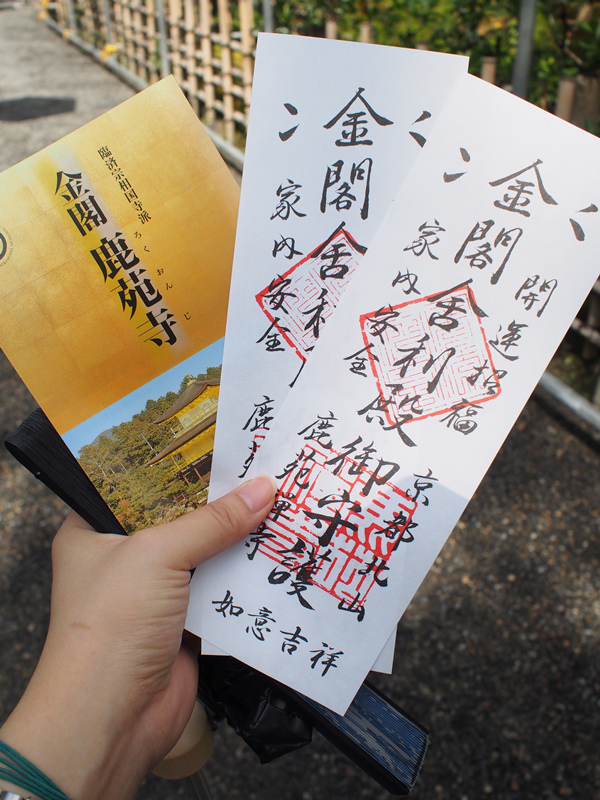 臨済宗相国寺派
ろくおんじ
金閣 鹿苑寺
金閣舎利
家内安全
鹿
開運招福
金閣舎利殿
御守護
家内安全
京都北山
鹿苑禅寺
如意吉祥